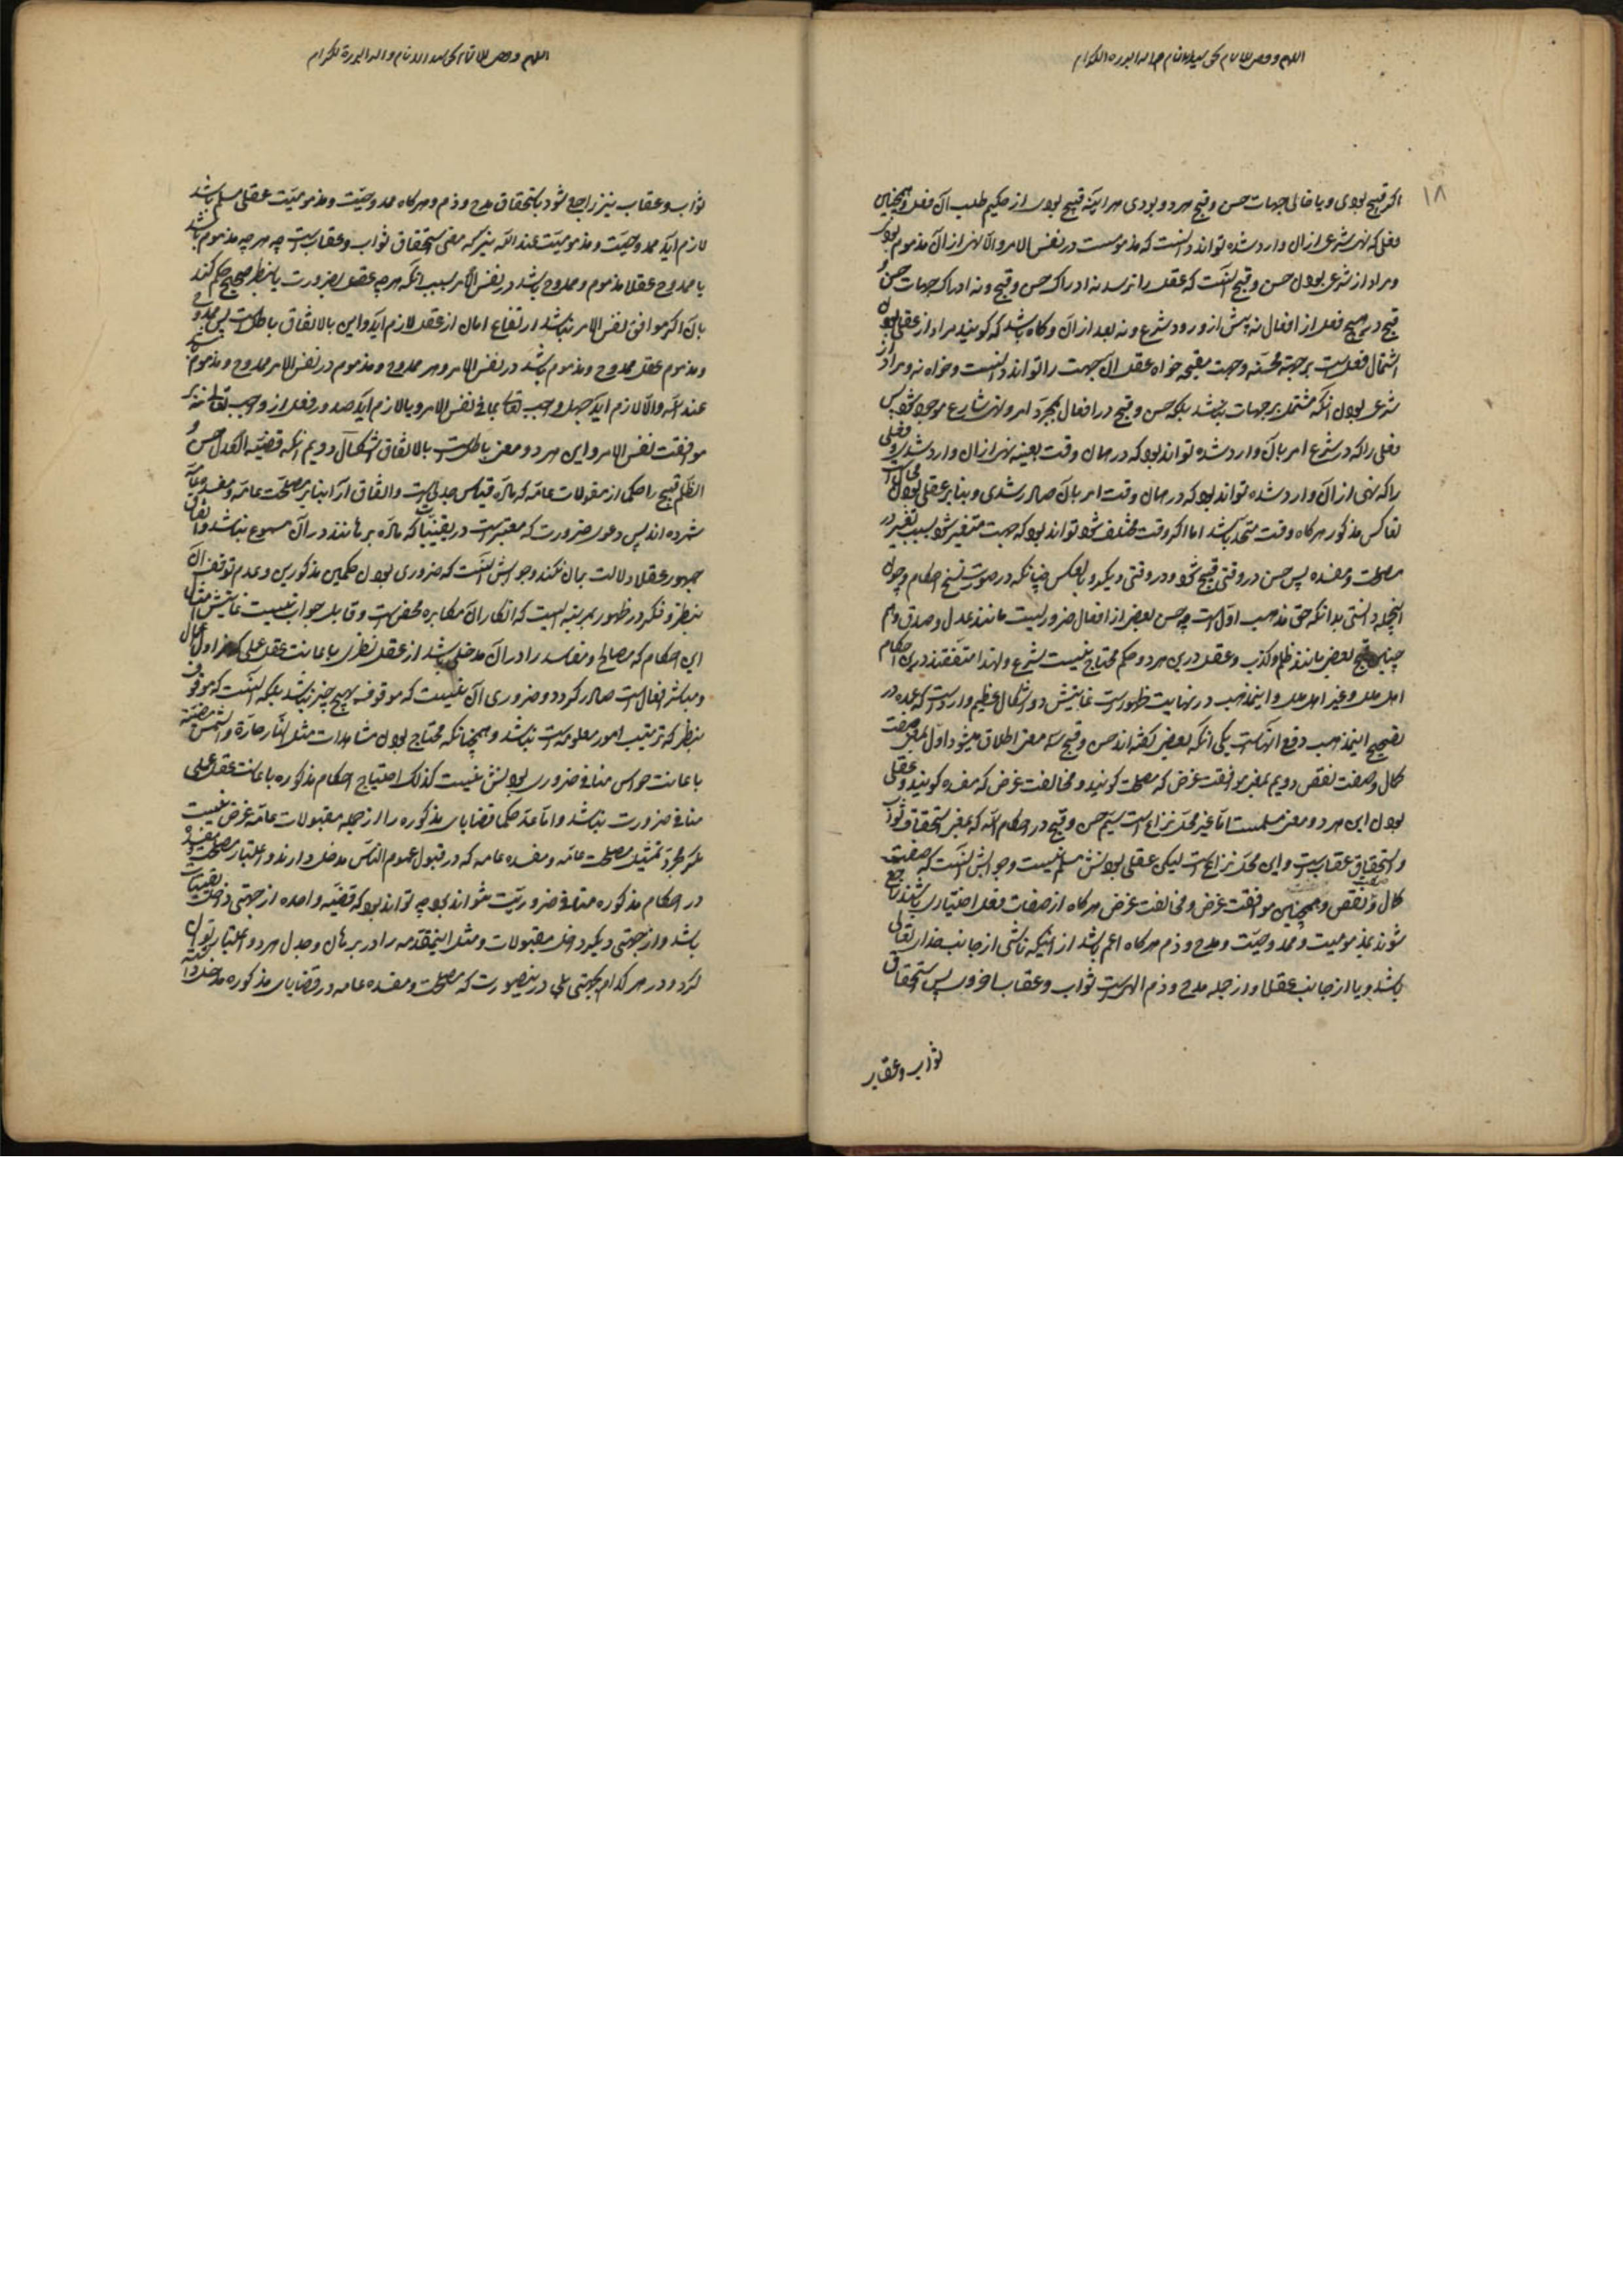 ۱۸
اگر قبیح بودی و یا خالی جهات حسن و قبح هر دو بودی هر اینه قبیح بودی از حکیم طلب آن فعل و همچنین
فعلی که نهی شرعی از ان وارد شده تواند دانست که مذمومست در نفس الامر و الا نهی از آن مذموم بودی
و مراد از شرعی بودن حسن و قبح آنست که عقل را نرسد نه ادراک حسن و قبح و نه ادراک جهات حسن و
قبح در هیچ فعلی از افعال نه پیش از ورود شرع و نه بعد از آن و گاه باشد که گویند مراد از عقلی بودن
اشتمال فعلست بر جهت محسنه و جهت مقبحه خواه عقل آن جهت را تواند دانست و خواه نه و مراد از
شرعی بودن آنکه مشتمل بر جهات نباشد بلکه حسن و قبح در افعال بمجرد امر و نهی شارع موجود شود پس
فعلی را که در شرع امر بآن وارد شده تواند بود که در همان وقت بعینه نهی از ان وارد شدی و فعلی
را که نهی از آن وارد شده تواند بود که در همان وقت امر بآن صادر شدی و بنا بر عقلی بودن محالست
تعاکس مذکور هرگاه وقت متحد باشد اما اگر وقت مختلف شود تواند بود که جهت متغیر شود بسبب تغیر در
مصلحت و مفسده پس حسن در وقتی قبیح شود در وقتی دیگر و بالعکس چنانکه در صورت نسخ احکام و چون
اینجمله دانستی بدانکه حق مذهب اول است چه حسن بعضی از افعال ضروریست مانند عدل و صدق و هم
چنین قبح بعضی مانند ظلم و کذب و عقل درین هر دو حکم محتاج نیست بشرع و لهذا متفقند درین احکام
اهل ملل و غیر اهل ملل و اینمذهب در نهایت ظهورست غایتش دو اشکال عظیم واردست که عمده در
تصحیح اینمذهب دفع آنهاست یکی آنکه بعضی گفته اند حسن و قبح بسه معنی اطلاق میشود اول بمعنی صفت
کمال و صفت نقص دویم بمعنی موافقت غرض که مصلحت گویند و مخالفت غرض که مفسده گویند و عقلی
بودن این هر دو معنی مسلمست اما غیر محل نزاع است سیم حسن و قبح در احکام الله که بمعنی استحقاق ثواب
و استحقاق عقابست و این محل نزاع است لیکن عقلی بودنش مسلم نیست و جوابش آنست که صفت
کمال و نقص و همچنین موافقت غرض و مخالفت غرض هرگاه از صفات فعل اختیاری باشند راجع
شوند بمذمومیت و ممدوحیت و مدح و ذم هرگاه اعم باشد از اینکه ناشی از جانب خدای تعالی
باشد و یا از جانب عقلا و از جمله مدح و ذم الهیست ثواب و عقاب اخروی پس استحقاق
ثواب و عقاب
ثواب و عقاب نیز راجع شود باستحقاق مدح و ذم و هرگاه ممدوحیت و مذمومیت عقلی مسلم باشد
لازم آید ممدوحیت و مذمومیت عند الله نیز که معنی استحقاق ثواب و عقابست چه هر چه مذموم باشد
یا ممدوح عقلا مذموم و ممدوح باشد در نفس الامر بسبب آنکه هر چه عقل بضرورت یا بنظر صحیح حکم کند
بآن اگر موافق نفس الامر نباشد ارتفاع امان از عقل لازم آید و این بالاتفاق باطلست پس ممدوح
و مذموم عقل ممدوح و مذموم باشد در نفس الامر و هر ممدوح و مذموم در نفس الامر ممدوح و مذموم باشد
عند الله و الا لازم آید جهل واجب تعالی بما فی نفس الامر و یا لازم آید صدور فعل از واجب تعالی نه بر
موافقت نفس الامر و این هر دو معنی باطلست بالاتفاق اشکال دویم آنکه قضیه العدل حسن و
الظلم قبیح را حکما از مقبولات عامه که ماده قیاس جدلی است و اتفاق آرا بنابر مصلحت عامه و مفسده عامه
شمرده اند پس دعوی ضرورت که معتبرست در یقینیات که ماده برهانند در آن مسموع نباشد و اتفاق
جمهور عقلا دلالت بران نکند و جوابش آنست که ضروری بودن حکمین مذکورین و عدم توقف آن
بنظر و فکر در ظهور بمرتبه ایست که انکار آن مکابره محض است و قابل جواب نیست غایتش امثال
این احکام که مصالح و مفاسد را در آن مدخلی باشد از عقل نظری باعانت عقل عملی که مزاول اعمال
و مباشر افعال است صادر گردد و ضروری آن نیست که موقوف بهیچ چیز نباشد بلکه آنست که موقوف
بنظر که ترتیب امور معلومه است نباشد و همچنانکه محتاج بودن مشاهدات مثل النار حارة و الشمس مضیئة
باعانت حواس منافی ضروری بودنش نیست کذلک احتیاج احکام مذکوره باعانت عقل عملی
منافی ضرورت نباشد و اما عد حکما قضایای مذکوره را از جمله مقبولات عامه غرض نیست
مگر مجرد تمثیل بمصلحت عامه و مفسده عامه که در قبول عموم الناس مدخل دارند و اعتبار مصلحت و مفسده
در احکام مذکوره منافی ضروریت نتواند بود چه تواند بود که قضیه واحده از جهتی داخل یقینیات
باشد و از جهتی دیگر داخل مقبولات و مثل اینمقدمه را در برهان و جدل هر دو اعتبار توان
کرد در هر کدام بجهتی بلی درینصورت که مصلحت و مفسده عامه در قضایای مذکوره مدخل دارد